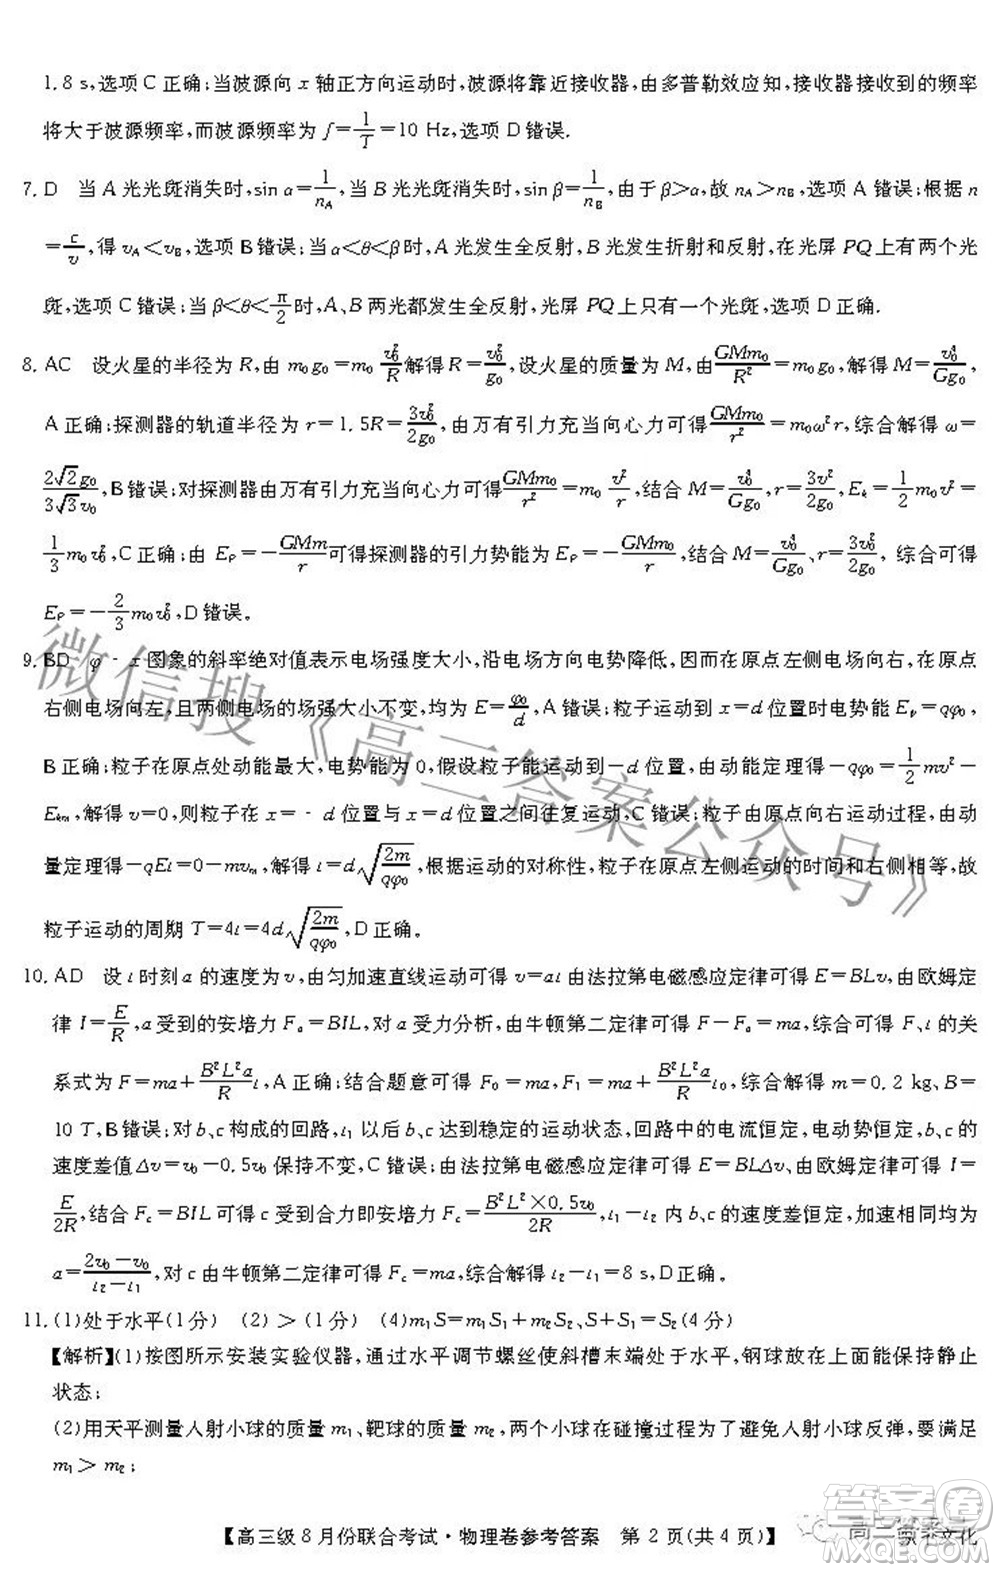 1.8 s,选项C正确;当波源向 x 轴正方向运动时,波源将靠近接收器,由多普勒效应知,接收器接收到的频率
将大于波源频率,而波源频率为 f=1/T=10 Hz,选项D错误.
7. D 当A光光斑消失时,sin α=1/n_A,当B光光斑消失时,sin β=1/n_B,由于β>α,故 n_A>n_B,选项A错误;根据 n
=c/v,得 v_A<v_B,选项B错误;当α<θ<β时,A光发生全反射,B光发生折射和反射,在光屏PQ上有两个光
斑,选项C错误;当β<θ<π/2时,A、B两光都发生全反射,光屏PQ上只有一个光斑,选项D正确.
8. AC 设火星的半径为R,由 m₀g₀=m₀v₀²/R解得R=v₀²/g₀,设火星的质量为M,由GMm₀/R²=m₀g₀,解得M=v₀⁴/Gg₀,
A正确;探测器的轨道半径为 r=1.5R=3v₀²/2g₀,由万有引力充当向心力可得GMm₀/r²=m₀ω²r,综合解得ω=
2√2g₀/3√3v₀,B错误;对探测器由万有引力充当向心力可得GMm₀/r²=m₀ v²/r,结合M=v₀⁴/Gg₀,r=3v²/2g₀,E_k=1/2 m₀v²=
1/3 m₀v₀²,C正确;由E_P=-GMm/r可得探测器的引力势能为E_P=-GMm₀/r,结合M=v₀⁴/Gg₀、r=3v₀²/2g₀,综合可得
E_P=-2/3 m₀v₀²,D错误。
9. BD φ-x图象的斜率绝对值表示电场强度大小,沿电场方向电势降低,因而在原点左侧电场向右,在原点
右侧电场向左,且两侧电场的场强大小不变,均为E=φ₀/d,A错误;粒子运动到x=d位置时电势能E_p=qφ₀,
B正确;粒子在原点处动能最大,电势能为0,假设粒子能运动到-d位置,由动能定理得-qφ₀=1/2 mv²-
E_km,解得v=0,则粒子在x=-d位置与x=d位置之间往复运动,C错误;粒子由原点向右运动过程,由动
量定理得-qEt=0-mv_m,解得t=d√(2m/qφ₀),根据运动的对称性,粒子在原点左侧运动的时间和右侧相等,故
粒子运动的周期T=4t=4d√(2m/qφ₀),D正确。
10. AD 设t时刻a的速度为v,由匀加速直线运动可得v=at由法拉第电磁感应定律可得E=BLv,由欧姆定
律I=E/R,a受到的安培力F_a=BIL,对a受力分析,由牛顿第二定律可得F-F_a=ma,综合可得F、t的关
系式为F=ma+(B²L²a/R)t,A正确;结合题意可得F₀=ma,F₁=ma+(B²L²a/R)t₀,综合解得m=0.2 kg,B=
10 T,B错误;对b、c构成的回路,t₁以后b、c达到稳定的运动状态,回路中的电流恒定,电动势恒定,b、c的
速度差值Δv=v₀-0.5v₀保持不变,C错误;由法拉第电磁感应定律可得E=BLΔv,由欧姆定律可得I=
E/2R,结合F_c=BIL可得c受到合力即安培力F_c=B²L²×0.5v₀/2R,t₁-t₂内b、c的速度差恒定,加速相同均为
a=(2v₀-v₀)/(t₂-t₁),对c由牛顿第二定律可得F_c=ma,综合可得t₂-t₁=8 s,D正确。
11. (1)处于水平(1分) (2)>(1分) (4)m₁S=m₁S₁+m₂S₂、S=S₁+S₂(4分)
【解析】(1)按图所示安装实验仪器,通过水平调节螺丝使斜槽末端处于水平,钢球放在上面能保持静止
状态;
(2)用天平测量入射小球的质量m₁、靶球的质量m₂,两个小球在碰撞过程为了避免入射小球反弹,要满足
m₁>m₂;
【高三级8月份联合考试·物理卷参考答案 第2页(共4页)】
微信搜《高三答案公众号》
答案圈